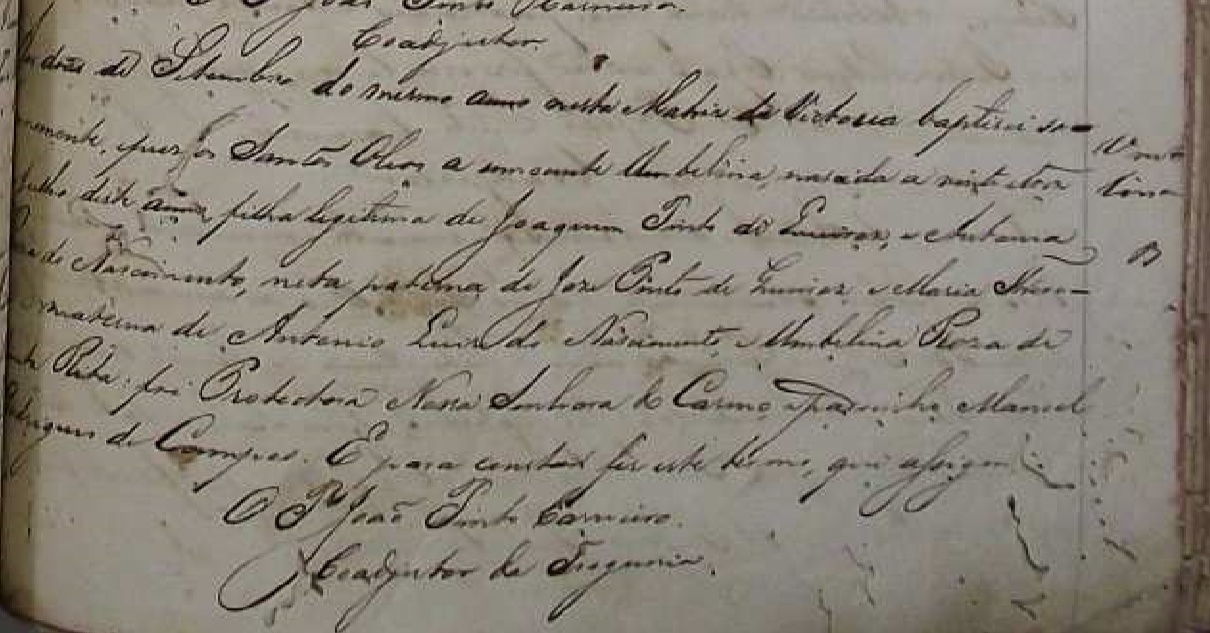 O P.e João Pinto Carneiro.
Coadjuctor.
dois de Setembro do mesmo anno nesta Matriz da Victoria baptisei so=
nemente, e puz os Santos Oleos a innocente Umbelina, nascida a vinte e dois
Julho deste anno, filha legitima de Joaquim Pinto de Queiroz, e Antonia
do Nascimento, neta paterna de José Pinto de Queiroz, e Maria
materna de Antonio Luiz do Nascimento, e Umbelina Roza de
Rita: foi Protectora Nossa Senhora do Carmo, e padrinho Manoel
de Campos. E para constar fiz este termo, que assigno
O P.e João Pinto Carneiro.
Coadjuctor da Freguesia.
Umbe
lina
B